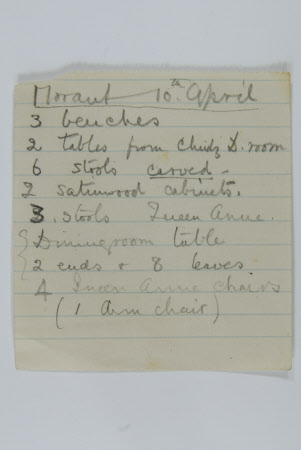 Morant 10th April
3 benches
2 tables from D. room
6 stools carved -
2 satinwood cabinets.
3. stools Queen Anne.
Diningroom table
2 ends & 8 leaves
4 Queen Anne chairs
(1 Arm chair)